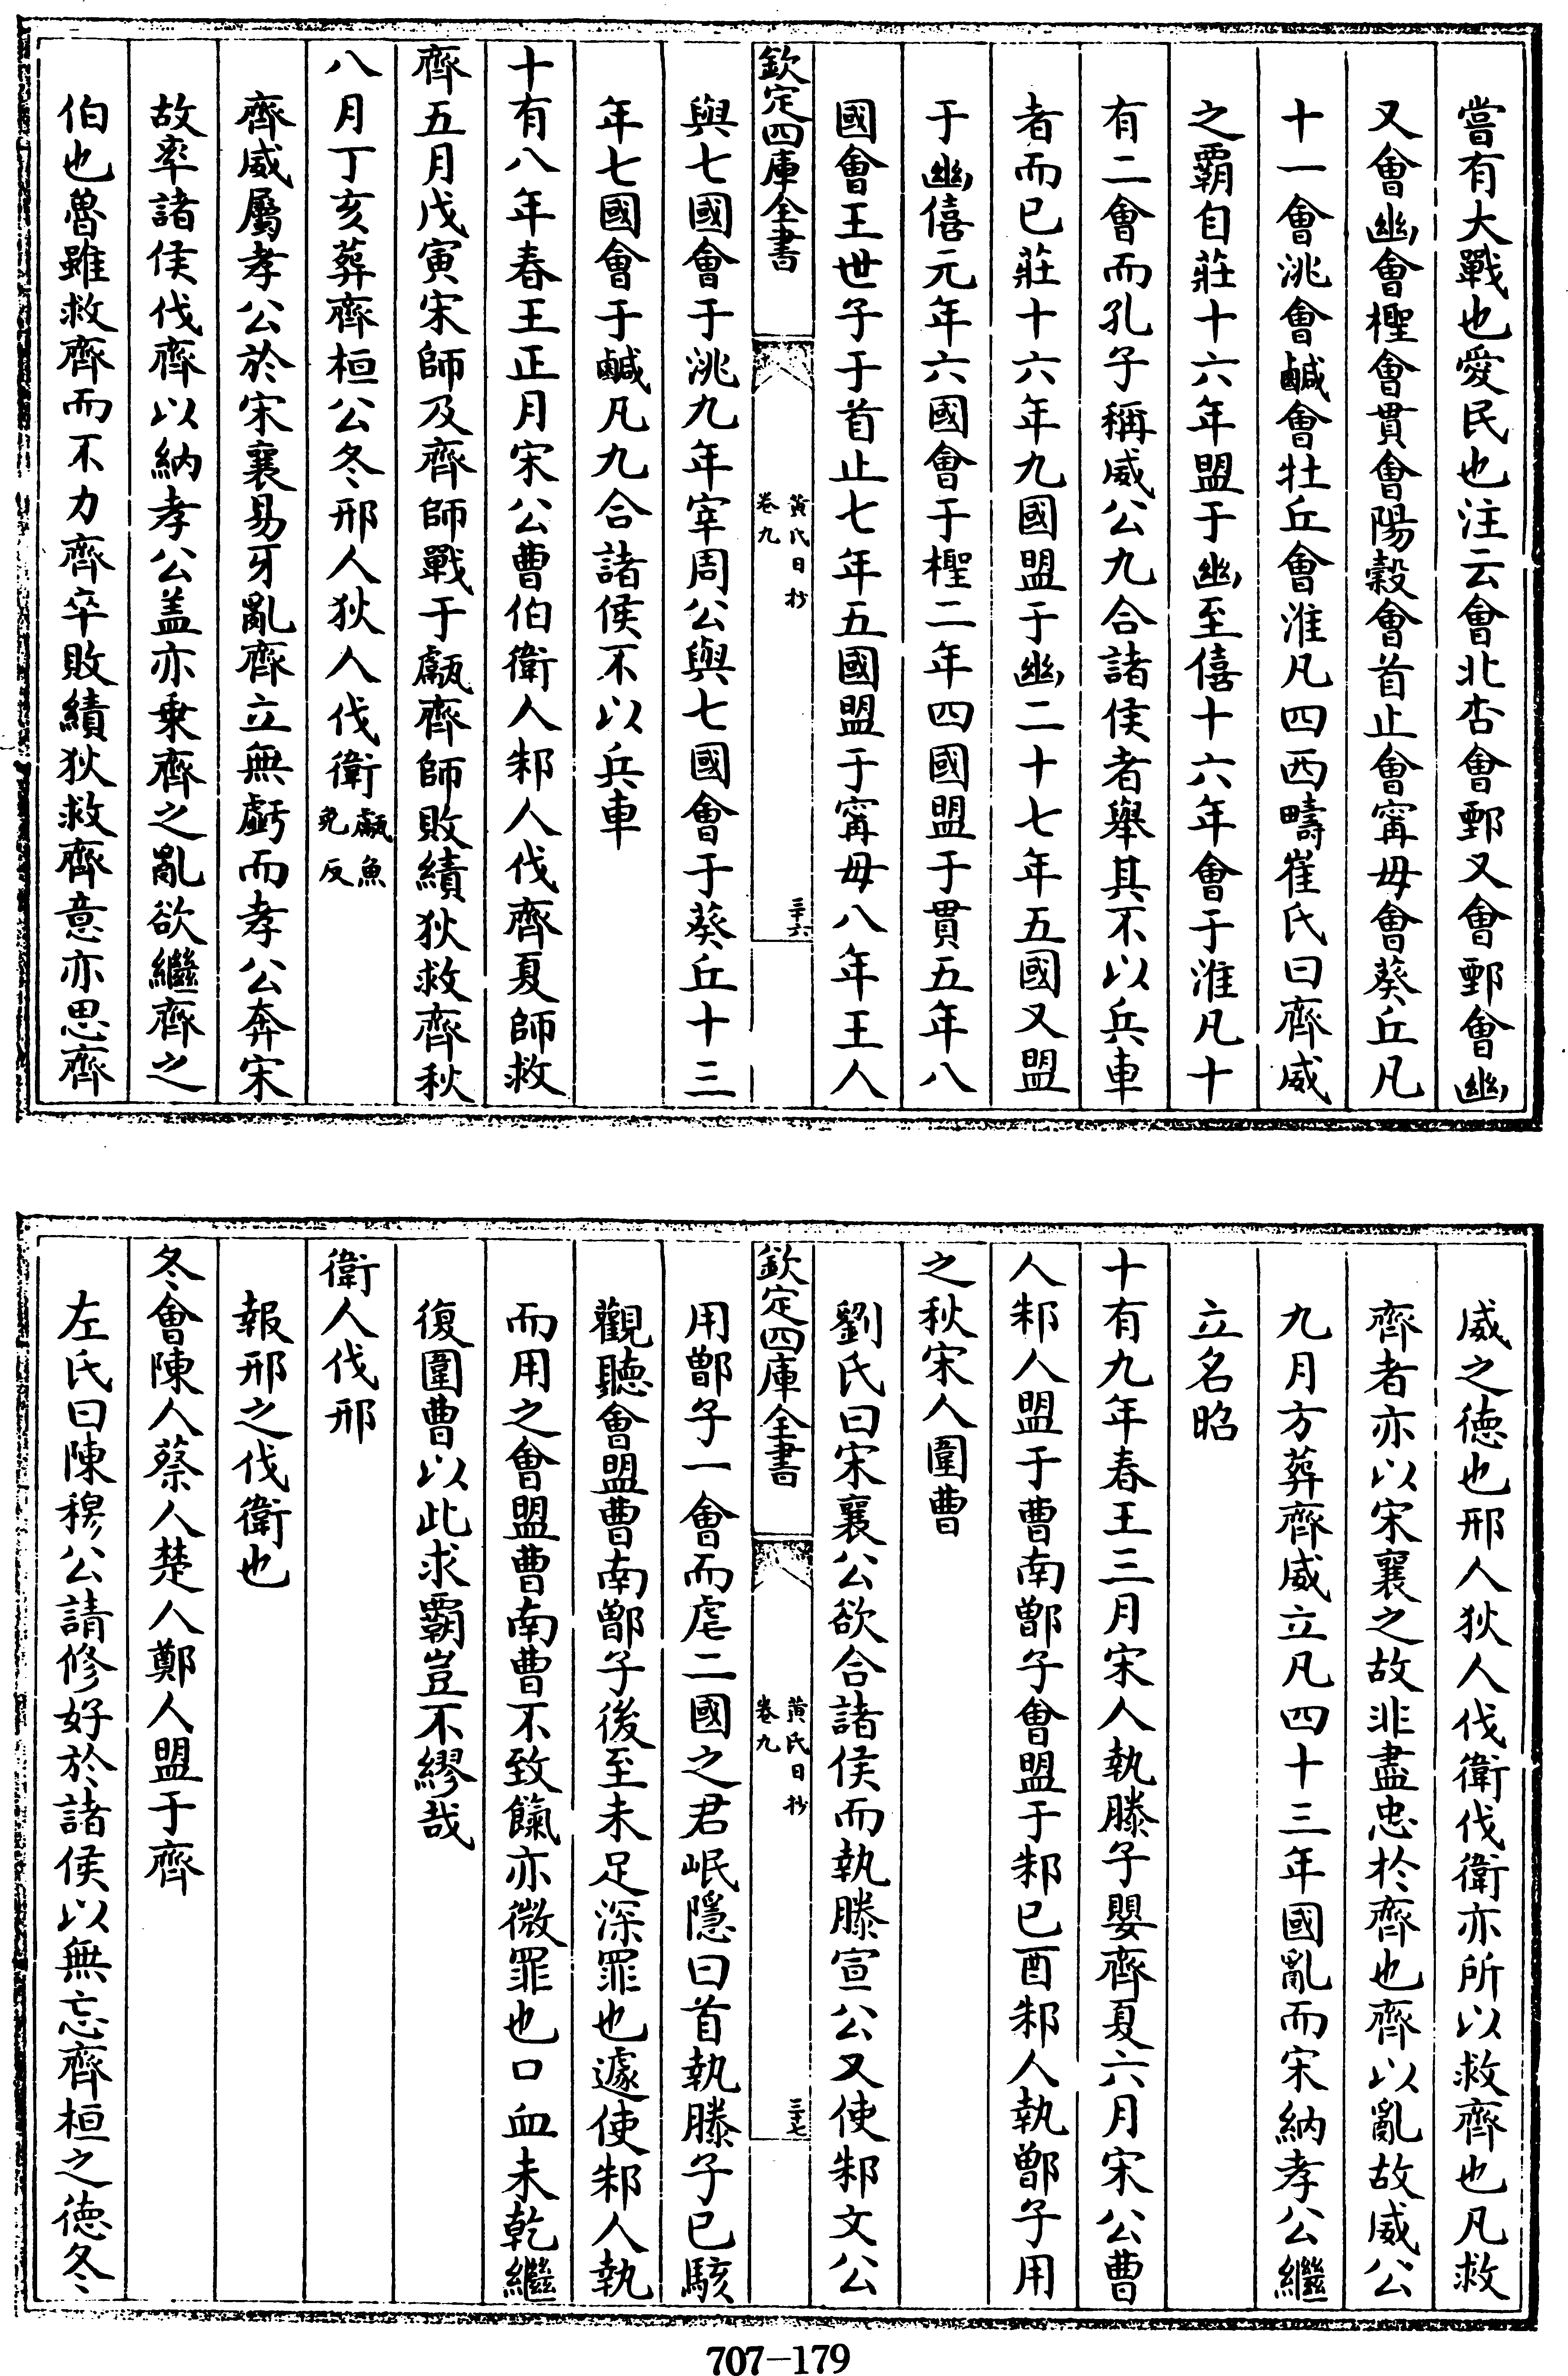 嘗有大戰也愛民也注云會北杏會鄄又會鄄會幽
又會幽會檉會貫會陽穀會首止會甯毋會葵丘凡
十一會洮會鹹會牡丘會淮凡四西疇崔氏曰齊威
之霸自莊十六年盟于幽至僖十六年會于淮凡十
有二會而孔子稱威公九合諸侯者舉其不以兵車
者而已莊十六年九國盟于幽二十七年五國又盟
于幽僖元年六國會于檉二年四國盟于貫五年八
國會王世子于首止七年五國盟于甯毋八年王人
欽定四庫全書
黃氏日抄
卷九
三十六
與七國會于洮九年宰周公與七國會于葵丘十三
年七國會于鹹凡九合諸侯不以兵車
十有八年春王正月宋公曹伯衛人邾人伐齊夏師救
齊五月戊寅宋師及齊師戰于甗齊師敗績狄救齊秋
八月丁亥葬齊桓公冬邢人狄人伐衛甗魚免反
齊威屬孝公於宋襄易牙亂齊立無虧而孝公奔宋
故率諸侯伐齊以納孝公盖亦乗齊之亂欲繼齊之
伯也魯雖救齊而不力齊卒敗績狄救齊意亦思齊
威之徳也邢人狄人伐衛伐衛亦所以救齊也凡救
齊者亦以宋襄之故非盡忠於齊也齊以亂故威公
九月方葬齊威立凡四十三年國亂而宋納孝公繼
立名昭
十有九年春王三月宋人執滕子嬰齊夏六月宋公曹
人邾人盟于曹南鄫子會盟于邾已酉邾人執鄫子用
之秋宋人圍曹
劉氏曰宋襄公欲合諸侯而執滕宣公又使邾文公
欽定四庫全書
黃氏日抄
卷九
三十七
用鄫子一會而虐二國之君岷隱曰首執滕子已駭
觀聽會盟曹南鄫子後至未足深罪也遽使邾人執
而用之會盟曹南曹不致餼亦微罪也口血未乾繼
復圍曹以此求霸豈不繆哉
衛人伐邢
報邢之伐衛也
冬會陳人蔡人楚人鄭人盟于齊
左氏曰陳穆公請修好於諸侯以無忘齊桓之徳冬
707-179